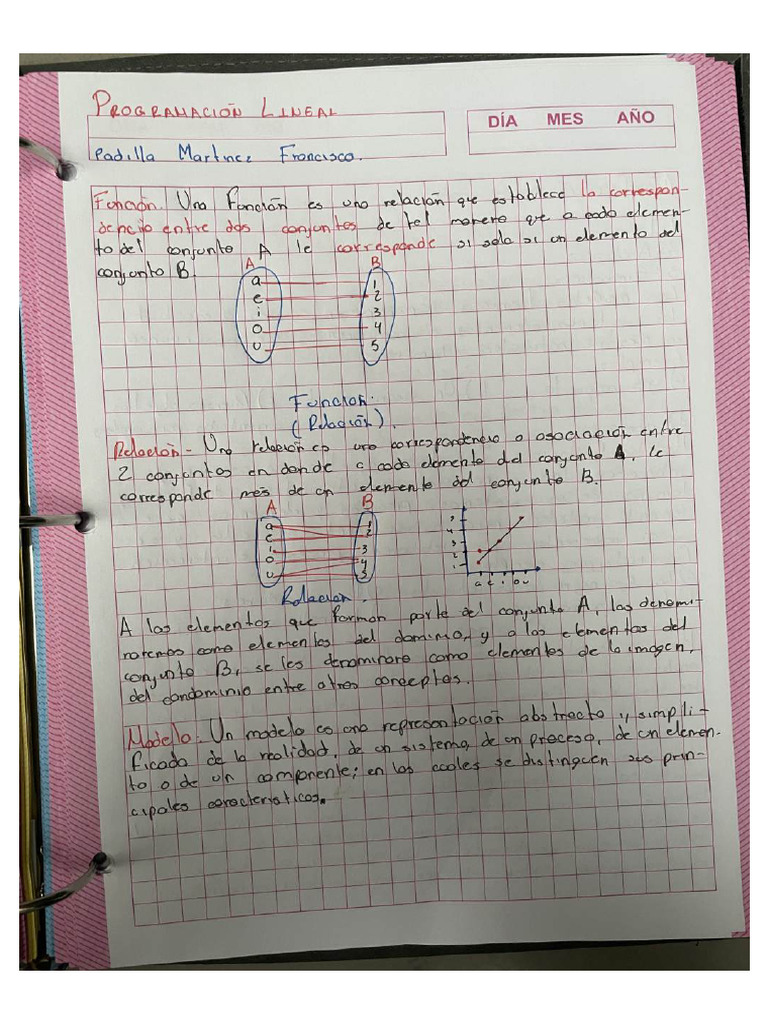 PROGRAMACIÓN LINEAL
DÍA MES AÑO
Padilla Martinez Francisco.
Función. Una Función es una relación que establece la correspon-
dencia entre dos conjuntos de tal manera que a cada elemen-
to del conjunto A le corresponde si solo si un elemento del
conjunto B.
A B
a 1
e 2
i 3
o 4
u 5
Función.
(Relación).
Relación - Una relación es una correspondencia o asociación entre
2 conjuntos en donde a cada elemento del conjunto A, le
corresponde más de un elemento del conjunto B.
A B
a 1
e 2
i 3
o 4
u 5
5
4
3
2
1
a e i o u
Relación.
A los elementos que forman parte del conjunto A, las denomi-
naremos como elementos del dominio, y a los elementos del
conjunto B, se les denominara como elementos de la imagen,
del condominio entre otros conceptos.
Modelo: Un modelo es una representación abstracta y simplifi-
ficada de la realidad, de un sistema, de un proceso, de un elemen-
to o de un componente; en los cuales se distinguen sus prin-
cipales caracteristicas.